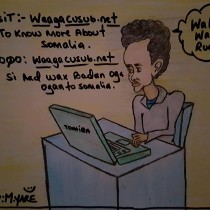 SIT:- Waagacusub.net
To Know More About
Somalia.
OFO: Waagacusub.net
Si Aad wax Badan oga
ogato Somalia.
WA
WA
RU
TOMIRA
:M.YARE